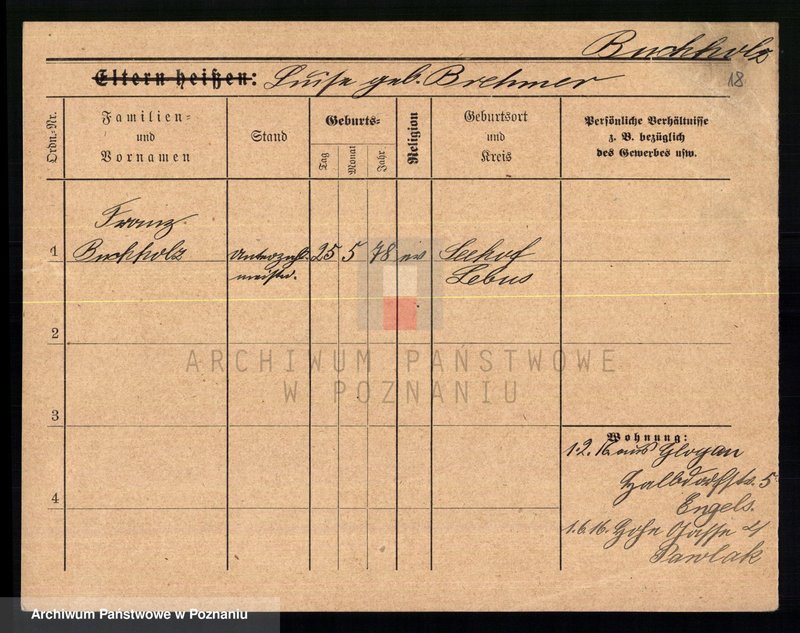 Buchholz
18
Eltern heißen: Luise geb. Brehmer
Ordn.-Nr.
Familien-
und
Vornamen
Stand
Geburts-
Tag
Monat
Jahr
Religion
Geburtsort
und
Kreis
Persönliche Verhältnisse
z. B. bezüglich
des Gewerbes usw.
Franz
1 Buchholz Unterzahl- 25 5 78 ev Seehof
meister. Lebus
2
3
4
ARCHIWUM PAŃSTWOWE
W POZNANIU
Wohnung:
1.2.16 aus Glogau
Halbdorfstr. 5
Engels.
1.6.16. Hohe Gasse 4
Pawlak
Archiwum Państwowe w Poznaniu